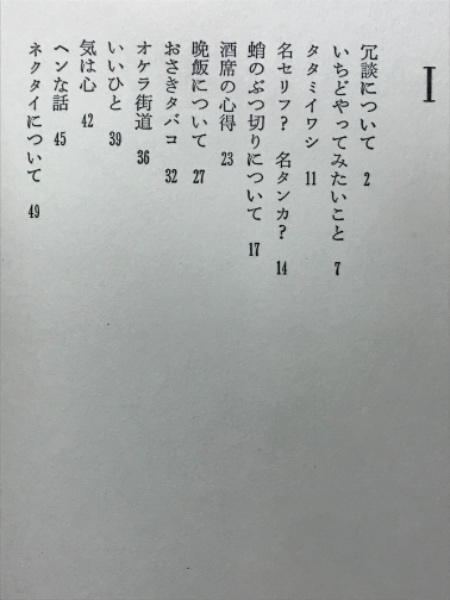 I
冗談について 2
いちどやってみたいこと 7
タタミイワシ 11
名セリフ? 名タンカ? 14
蛸のぶつ切りについて 17
酒席の心得 23
晩飯について 27
おさきタバコ 32
オケラ街道 36
いいひと 39
気は心 42
ヘンな話 45
ネクタイについて 49